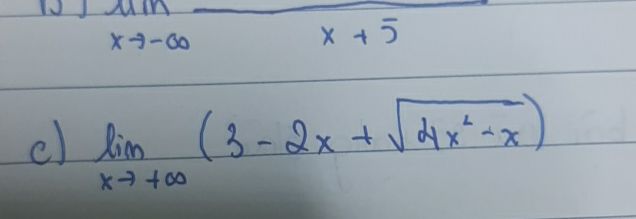 b) lim
x→-∞ x + 5
c) lim (3 - 2x + √(4x² - x))
x→ +∞